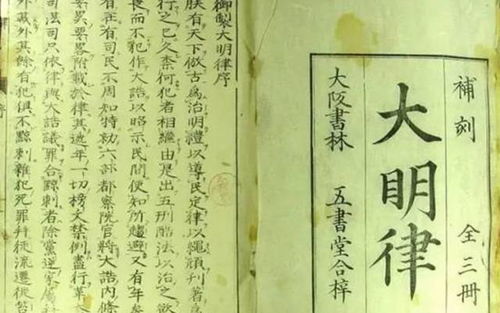 補刻 全三冊
大明律
大阪書林 五書堂合梓
御製大明律序
朕有天下倣古為治明禮以導民定律以繩頑刊著
行之已久柰何犯者相繼由是出五刑酷法以治之欲
畏而不犯作大誥以昭示民間使知所趨避又有年
有在有司民不周知特勑六部都察院官將大誥內條
要畧附載於律其逓年一切榜文禁例盡行革
司法司只依律與大誥議罪合黥刺者除黨逆家屬
外載外其餘有犯俱不黥刺雜犯死罪并徒流遷徙笞